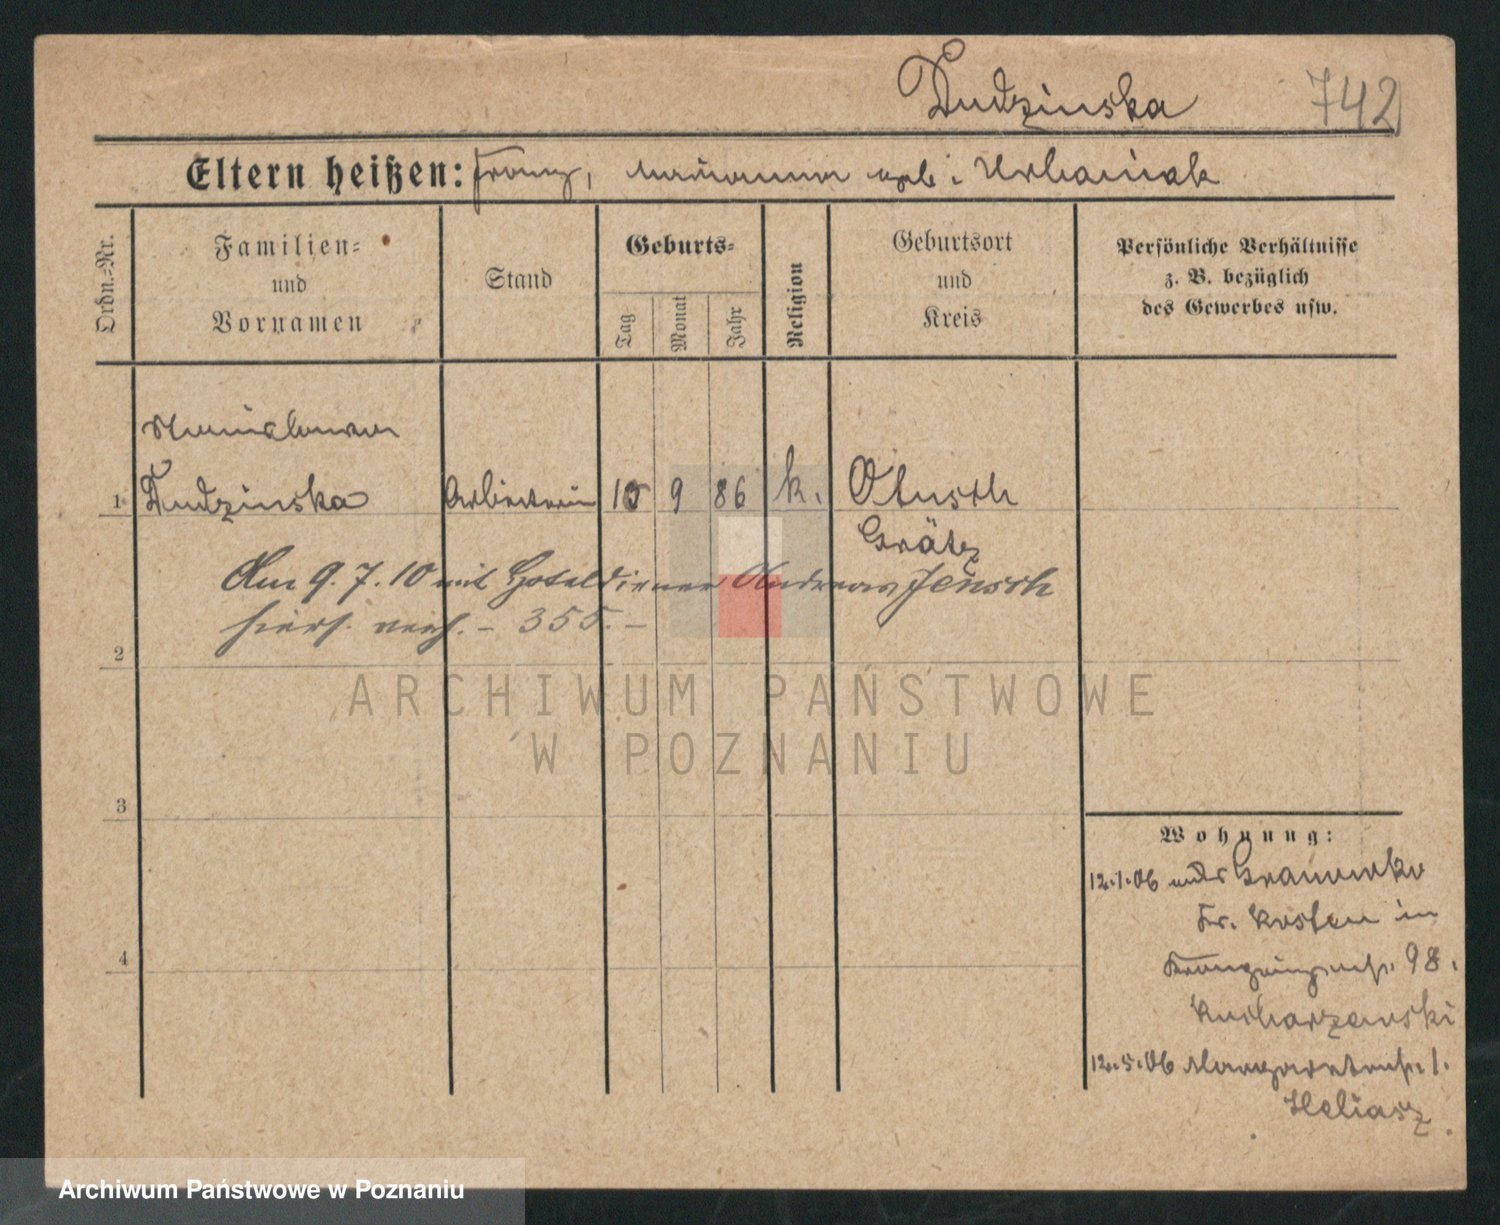 Dudzinska 742
Eltern heißen: Franz, Marianna geb: Urbaniak
Ordn.-Nr.
Familien- und Vornamen
Stand
Geburts-
Tag
Monat
Jahr
Religion
Geburtsort und Kreis
Persönliche Verhältnisse z. B. bezüglich des Gewerbes usw.
Stanislawa
1 Dudzinska Arbeiterin 10 9 86 k. Otusch
Grätz
Am 9.7.10 mit Hoteldiener Andreas Jensch
hiers. verh. - 355. -
2
3
4
Wohnung:
12.1.06 Granowko
Kr. Kosten in
Kronprinzenstr. 98.
Kucharzewski
12.5.06 Margaretenstr. 1.
Heliasz
ARCHIWUM PAŃSTWOWE
W POZNANIU
Archiwum Państwowe w Poznaniu